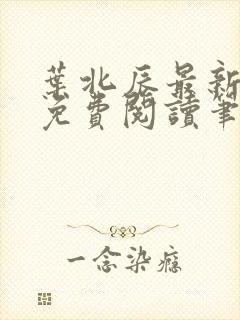 葉北辰最新
免費閱讀筆
一念染癮